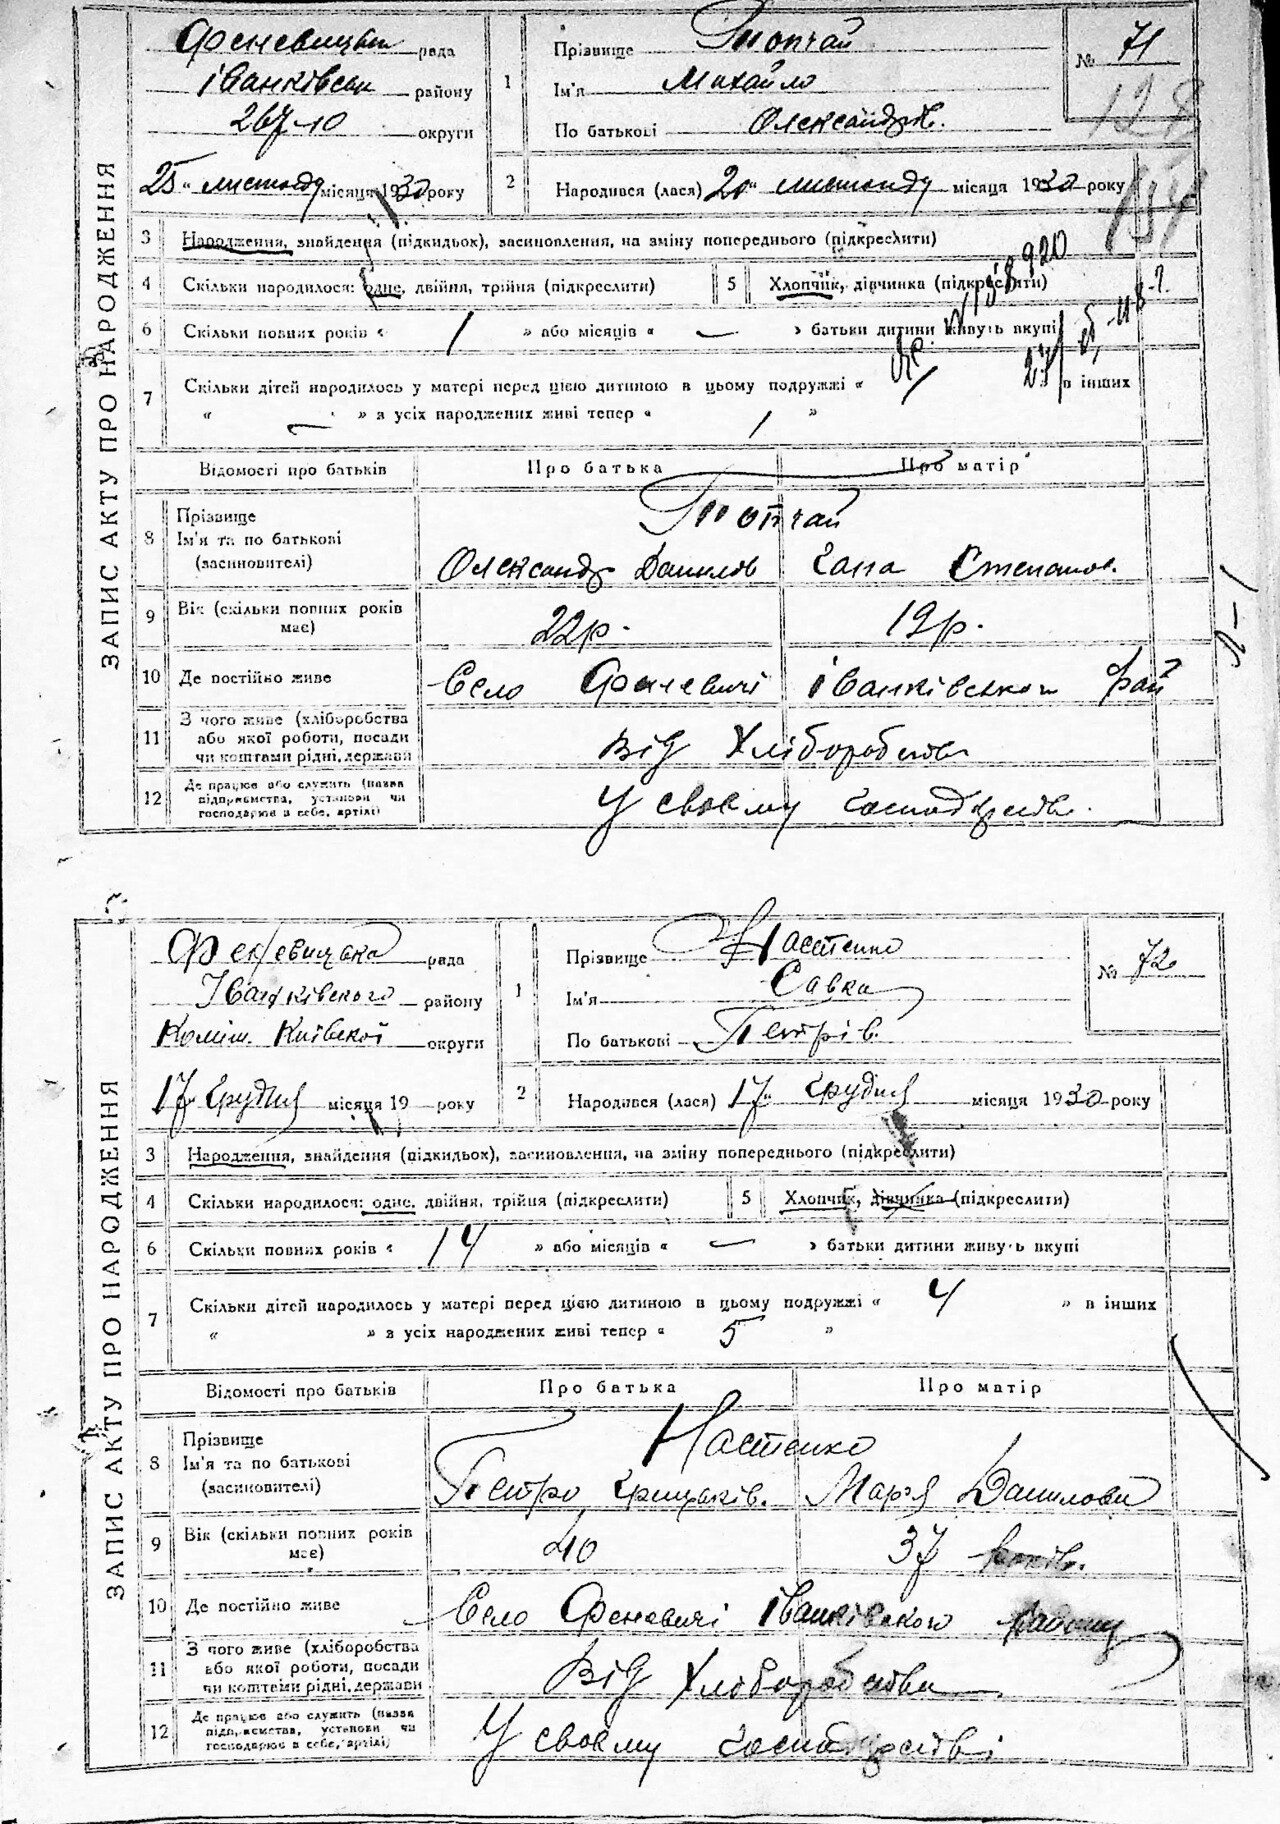 ЗАПИС АКТУ ПРО НАРОДЖЕННЯ
Феневицьк рада
Іванківськ району
округи
25 „ листопаду місяця 1930 року
1 Прізвище Топчай
Ім'я Михайло
По батькові Олександрів.
№ 71
128
2 Народився (лася) 20 „ листопаду місяця 1930 року
3 Народження, знайдення (підкидьок), засиновлення, на зміну попереднього (підкреслити)
4 Скільки народилося: одне, двійня, трійня (підкреслити) 5 Хлопчик, дівчинка (підкреслити)
6 Скільки повних років « 1 » або місяців « — » батьки дитини живуть вкупі
7 Скільки дітей народилось у матері перед цією дитиною в цьому подружжі « / в інших
« — » з усіх народжених живі тепер « 1 »
Відомості про батьків Про батька Про матір
8 Прізвище
Ім'я та по батькові
(засиновителі)
Топчай
Олександр Данилов Гана Степанов.
9 Вік (скільки повних років має) 22 р. 19 р.
10 Де постійно живе Село Феневичі Іванківського рай
11 З чого живе (хліборобства або якої роботи, посади чи коштами рідні, держави Від Хліборобств
12 Де працює або служить (назва підприємства, установи чи господарює в себе, артілі) У своєму господарстві.
ЗАПИС АКТУ ПРО НАРОДЖЕННЯ
Феневицька рада
Іванківського району
Колиш. Київської округи
17 „ Грудня місяця 19 року
1 Прізвище Настенко
Ім'я Савка
По батькові Петрів.
№ 72
2 Народився (лася) 17 „ Грудня місяця 1930 року
3 Народження, знайдення (підкидьок), засиновлення, на зміну попереднього (підкреслити)
4 Скільки народилося: одне, двійня, трійня (підкреслити) 5 Хлопчик, дівчинка (підкреслити)
6 Скільки повних років « 14 » або місяців « — » батьки дитини живуть вкупі
7 Скільки дітей народилось у матері перед цією дитиною в цьому подружжі « 4 » в інших
« » з усіх народжених живі тепер « 5 »
Відомості про батьків Про батька Про матір
8 Прізвище
Ім'я та по батькові
(засиновителі)
Настенко
Петро Грицьків. Мар'я Данилова
9 Вік (скільки повних років має) 40 37 років.
10 Де постійно живе Село Феневичі Іванківського району
11 З чого живе (хліборобства або якої роботи, посади чи коштами рідні, держави Від Хліборобства
12 Де працює або служить (назва підприємства, установи чи господарює в себе, артілі) У своєму господарстві